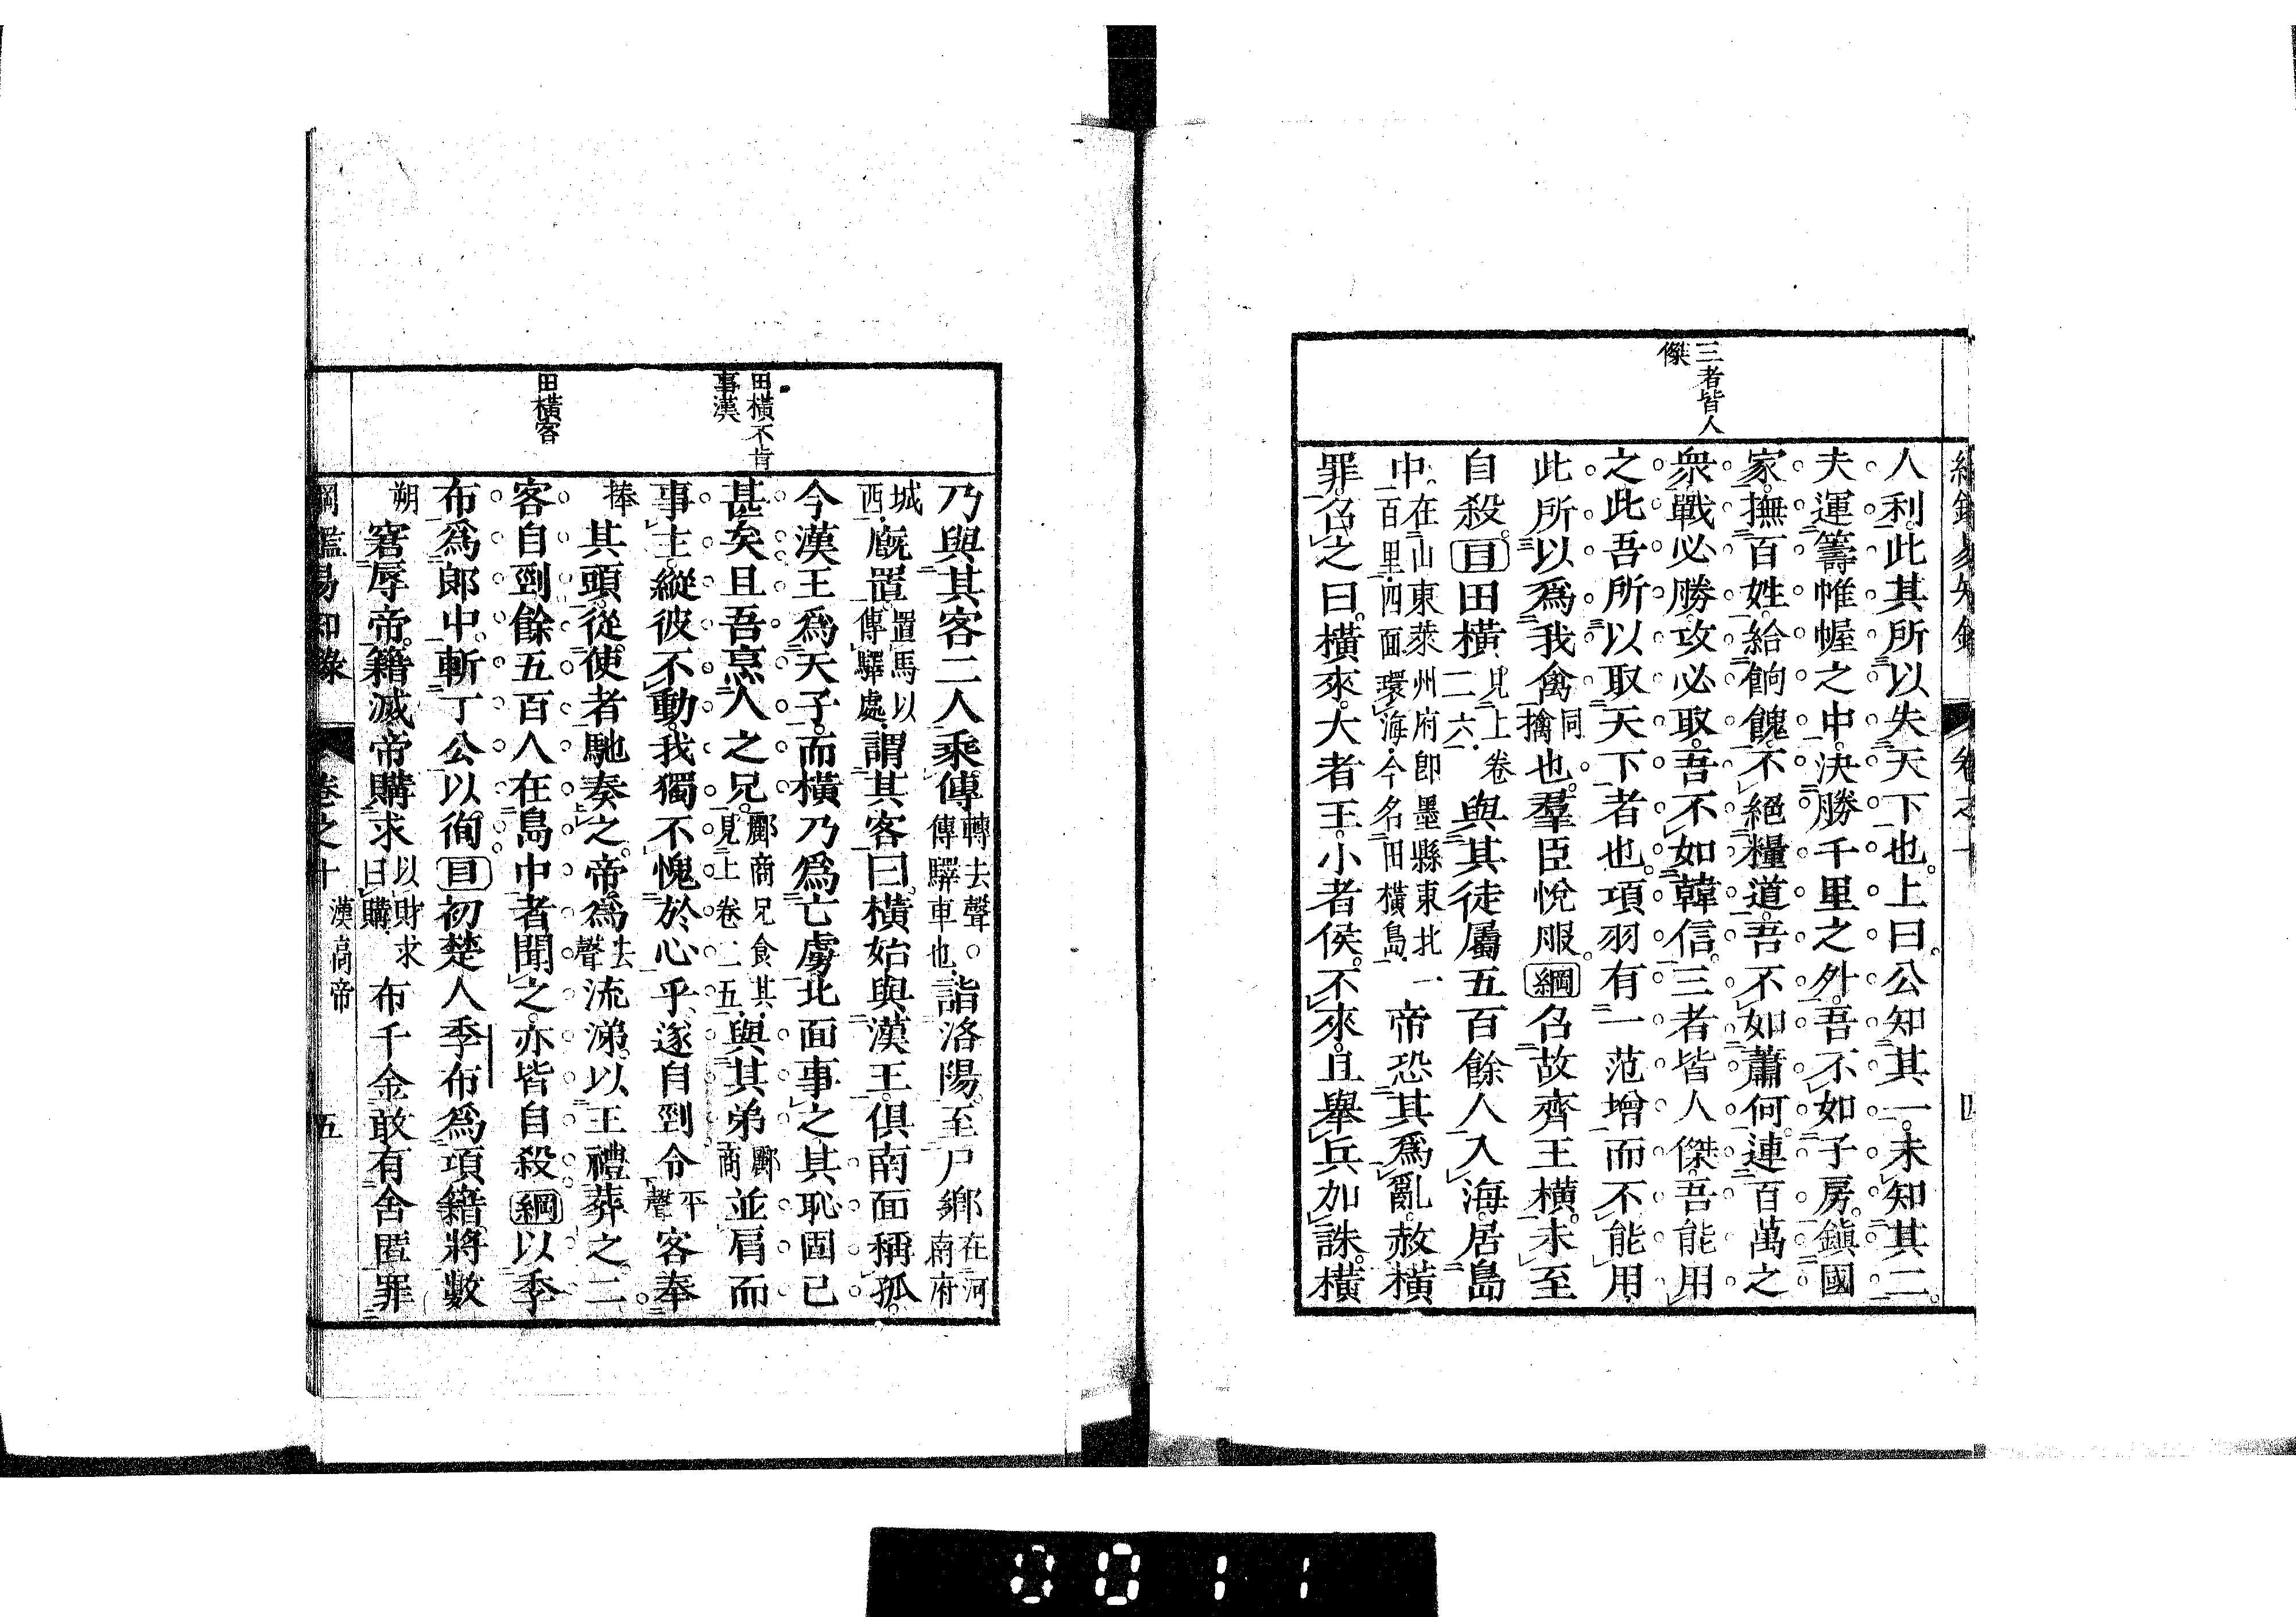 綱鑑易知錄 卷之十 四
三者皆人
傑
人利此其所以失天下也上曰公知其一未知其二
夫運籌帷幄之中決勝千里之外吾不如子房鎭國
家撫百姓給餉餽不絕糧道吾不如蕭何連百萬之
衆戰必勝攻必取吾不如韓信三者皆人傑吾能用
之此吾所以取天下者也項羽有一范增而不能用
此所以爲我禽同擒也羣臣悅服綱召故齊王橫未至
自殺目田橫見上卷二六與其徒屬五百餘人入海居島
中在山東萊州府卽墨縣東北一百里四面環海今名田橫島帝恐其爲亂赦橫
罪召之曰橫來大者王小者侯不來且舉兵加誅橫
田橫不肯
事漢
田橫客
乃與其客二人乘傳轉去聲○傳驛車也詣洛陽至尸鄉在河南府
城西廐置置馬以傳驛處謂其客曰橫始與漢王俱南面稱孤
今漢王爲天子而橫乃爲亡虜北面事之其恥固已
甚矣且吾烹人之兄酈商兄食其見上卷二五與其弟酈商並肩而
事主縱彼不動我獨不愧於心乎遂自剄令平聲客奉
捧其頭從使者馳奏之帝爲去聲流涕以王禮葬之二
客自剄餘五百人在島中者聞之亦皆自殺綱以季
布爲郎中斬丁公以徇目初楚人季布爲項籍將數
朔窘辱帝籍滅帝購求以財求曰購布千金敢有舍匿罪
綱鑑易知錄 卷之十 漢高帝 五
0011